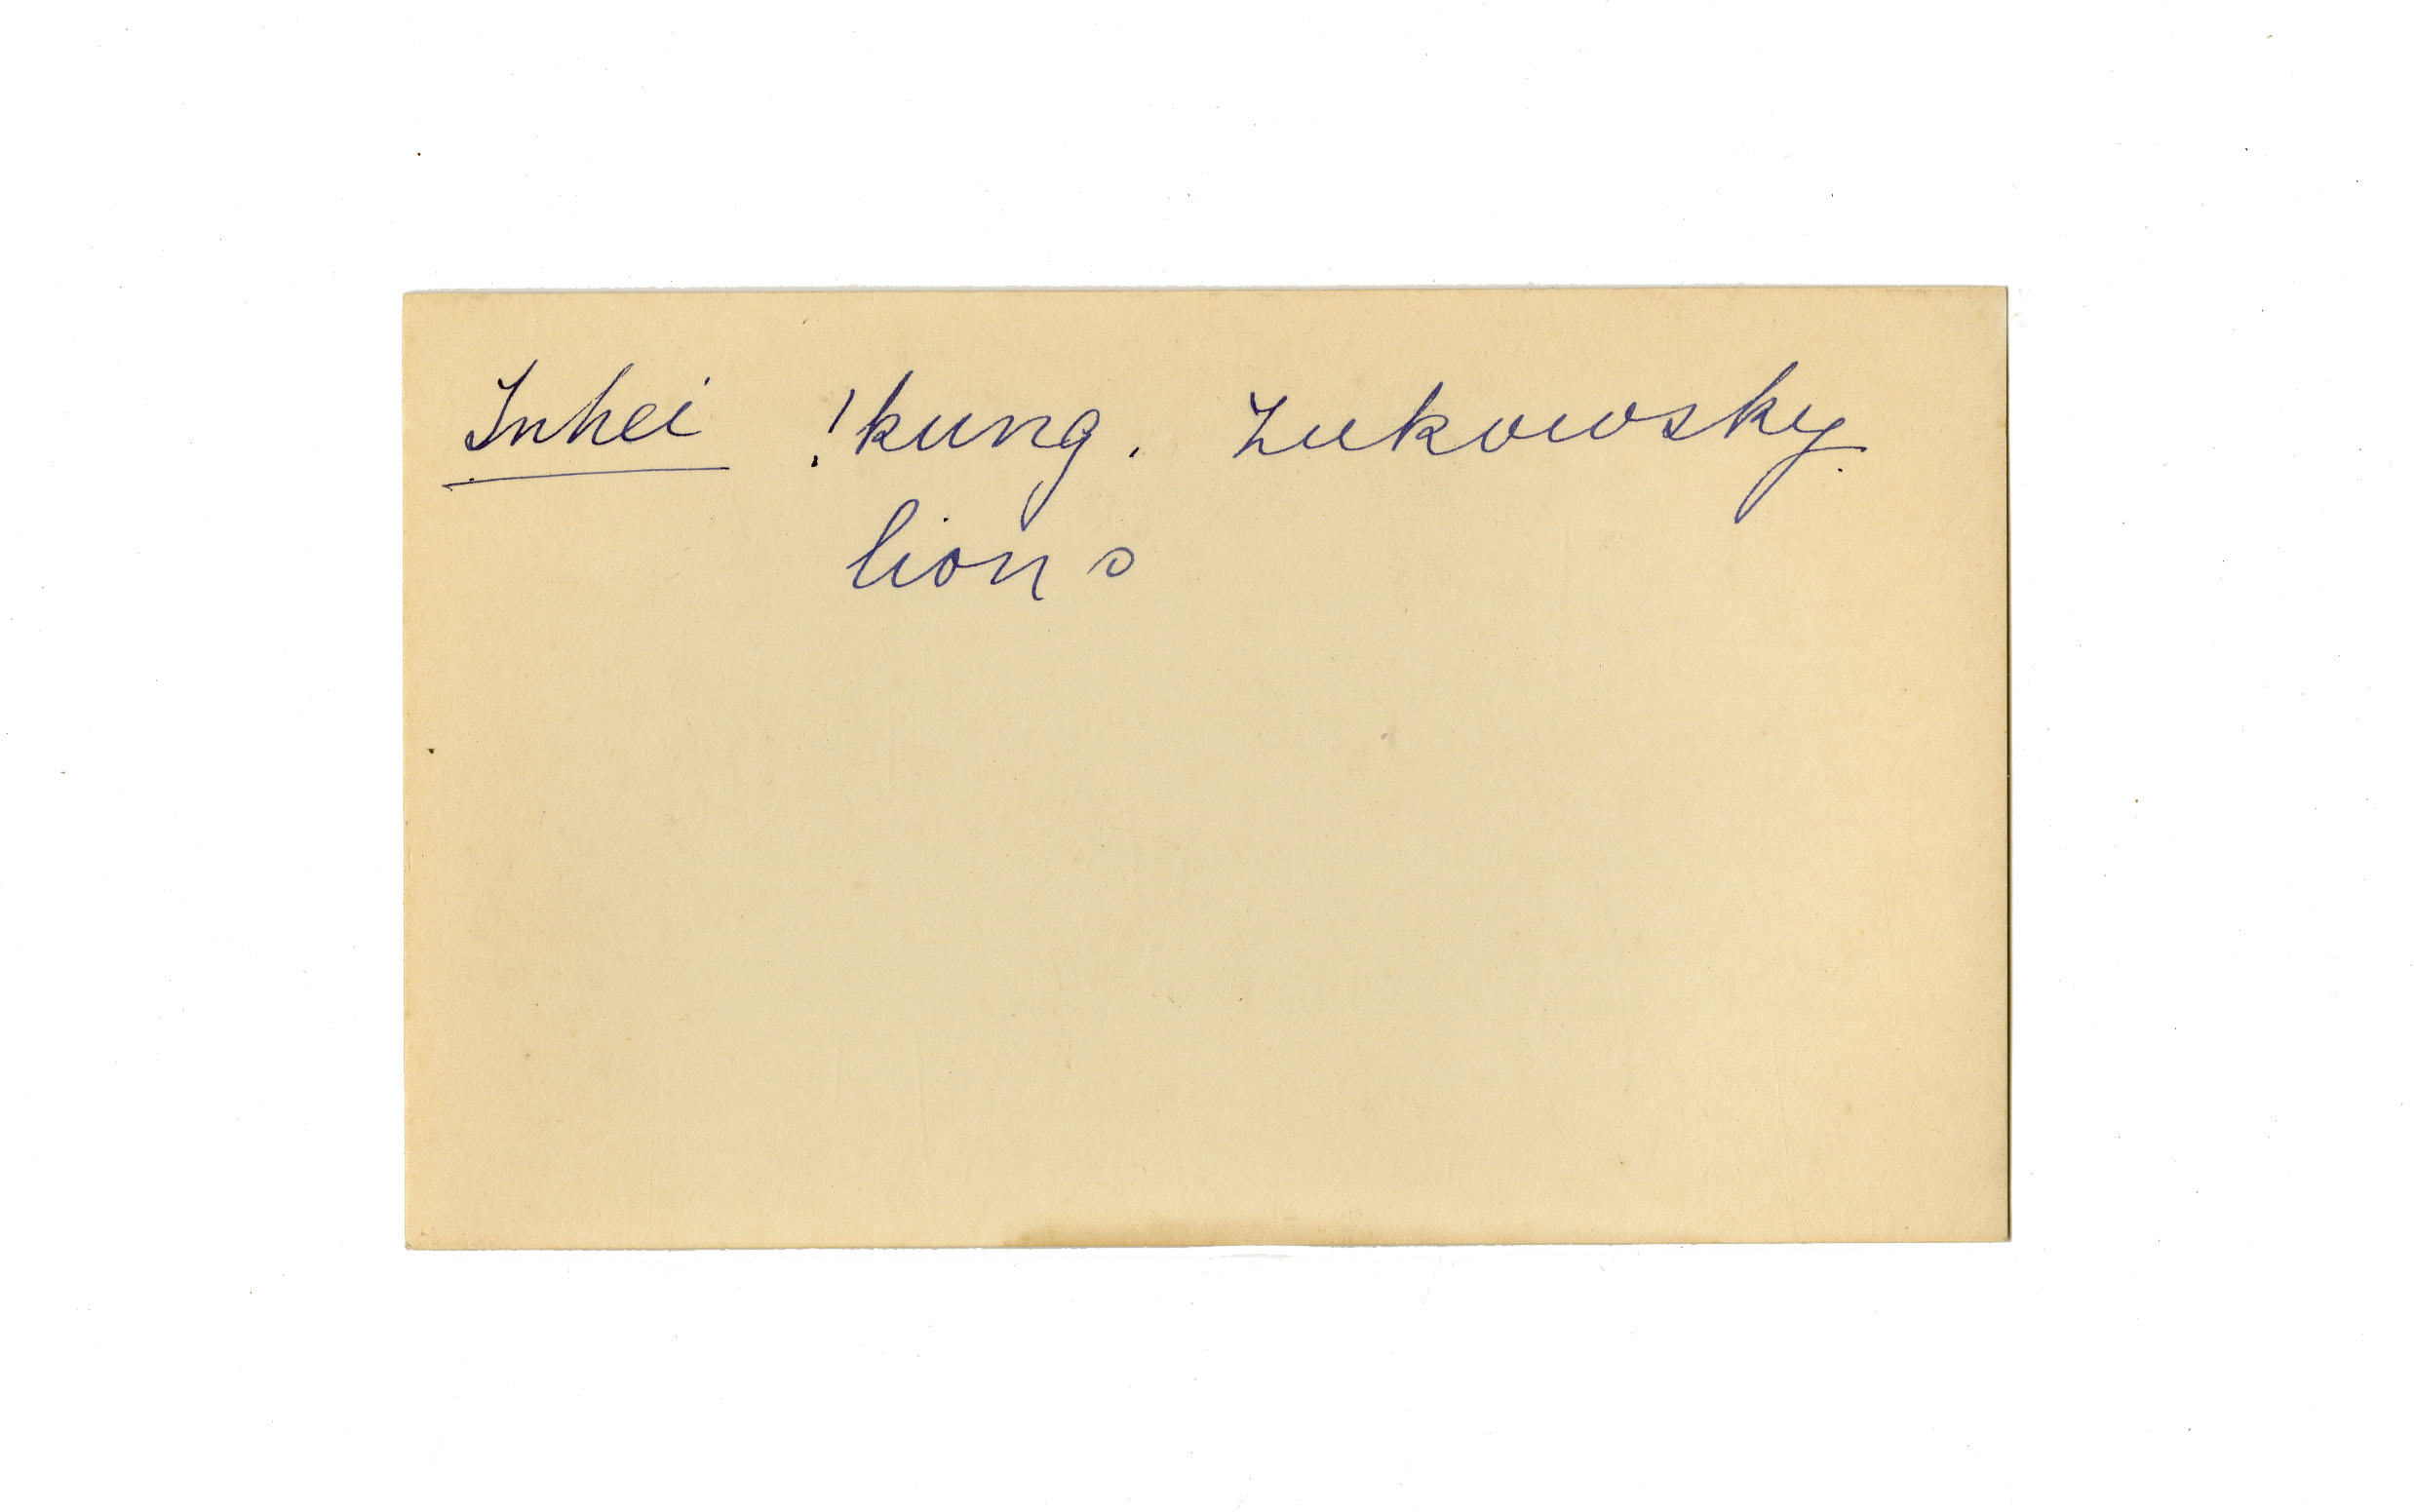 Inhei !kung. Lukowsky
lions